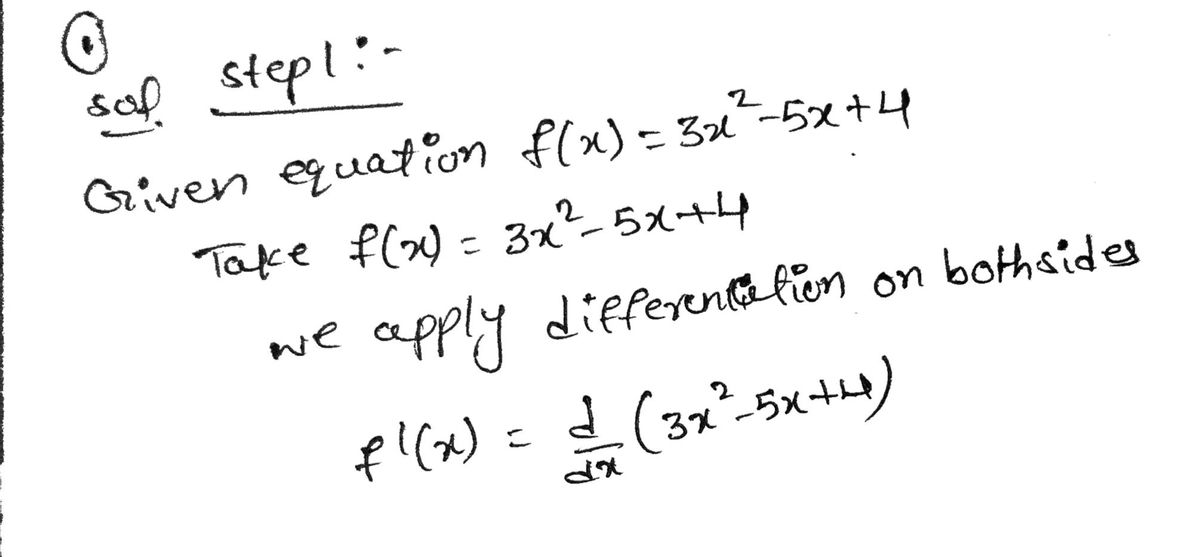 ①
sol. step1:-
Given equation f(x) = 3x²-5x+4
Take f(x) = 3x²-5x+4
we apply differentiation on bothsides
f'(x) = d/dx (3x²-5x+4)